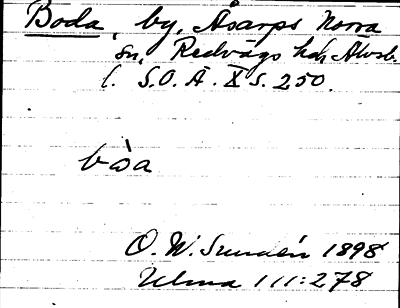 Boda, by, Åsarps Norra
sn, Redvägs hd, Älvsb.
l. S.O.Ä. X s. 250.
bòa
O. W. Sundén 1898
Ulma 111:278